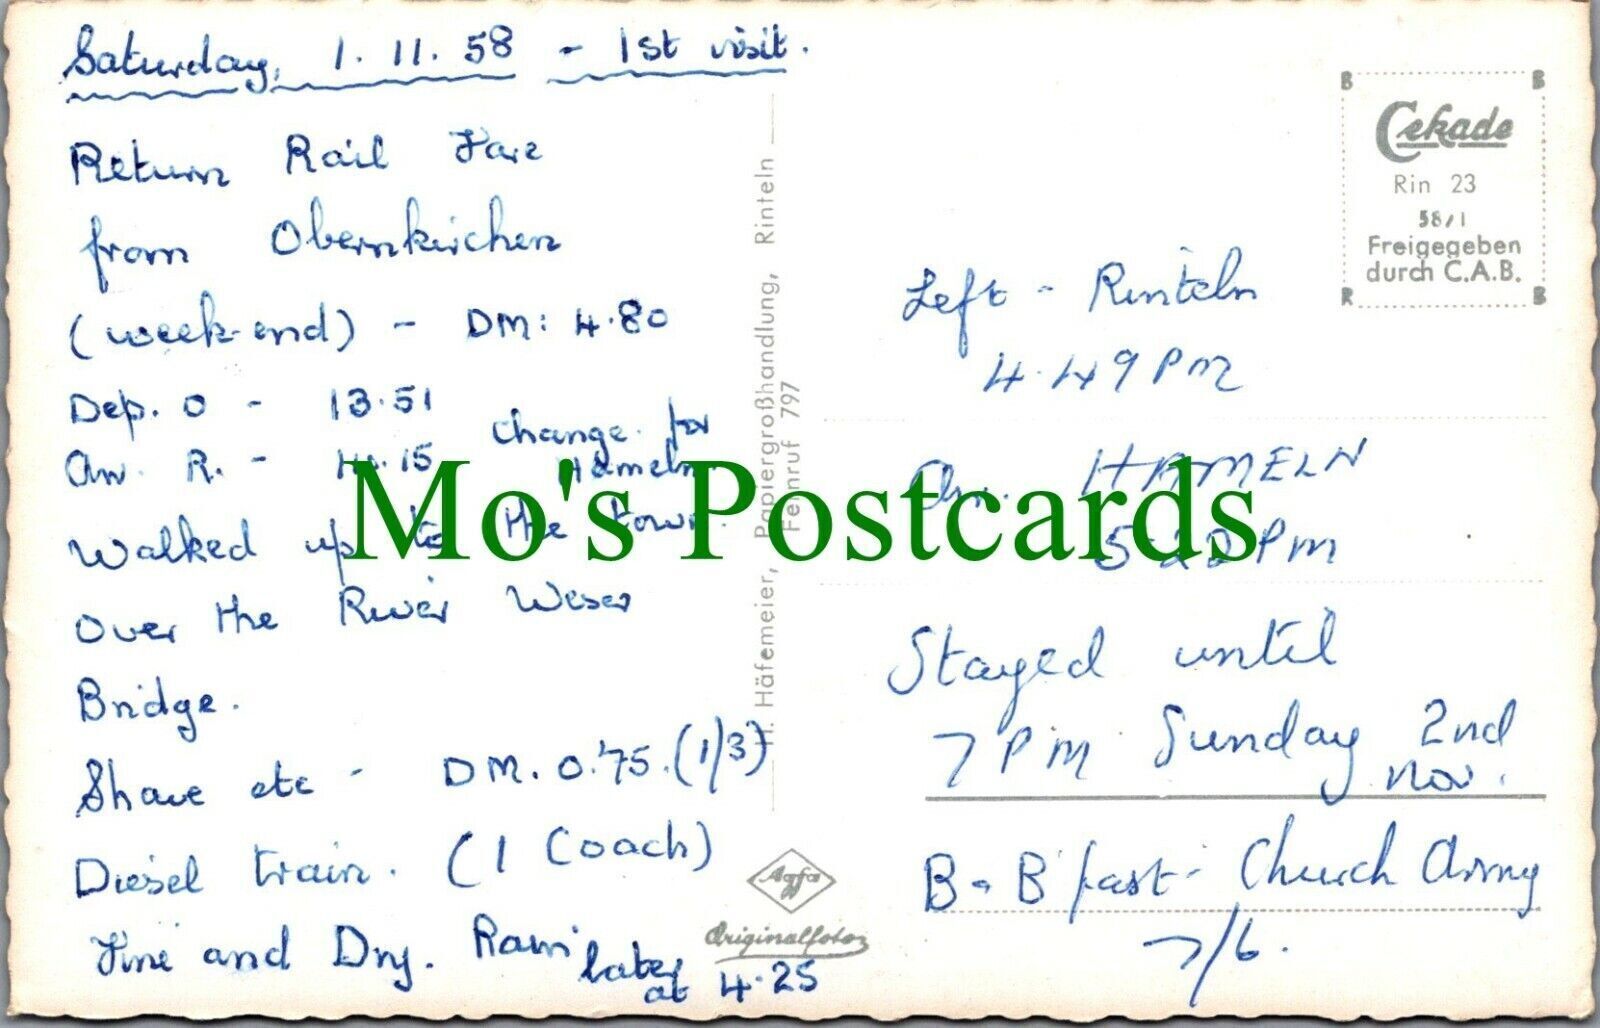 Saturday, 1.11.58 - 1st visit.
Return Rail Fare
from Obernkirchen
(week-end) - DM: 4.80
Dep. O - 13.51
Arr. R. - 14.15 Change for
Hameln
Walked up to the town.
Over the River Weser
Bridge.
Shave etc - DM. 0.75. (1/3)
Diesel train. (1 Coach)
Fine and Dry. Rain later
at 4.25
Häfemeier, Papiergroßhandlung, Rinteln
Fernruf 797
Agfa
Originalfoto
Cekade
Rin 23
58/1
Freigegeben
durch C.A.B.
B B
R B
Left - Rinteln
4.49 PM
Arr. HAMELN
5.22 PM
Stayed until
7 PM Sunday 2nd
Nov.
B - B'fast - Church Army
7/6.
Mo's Postcards